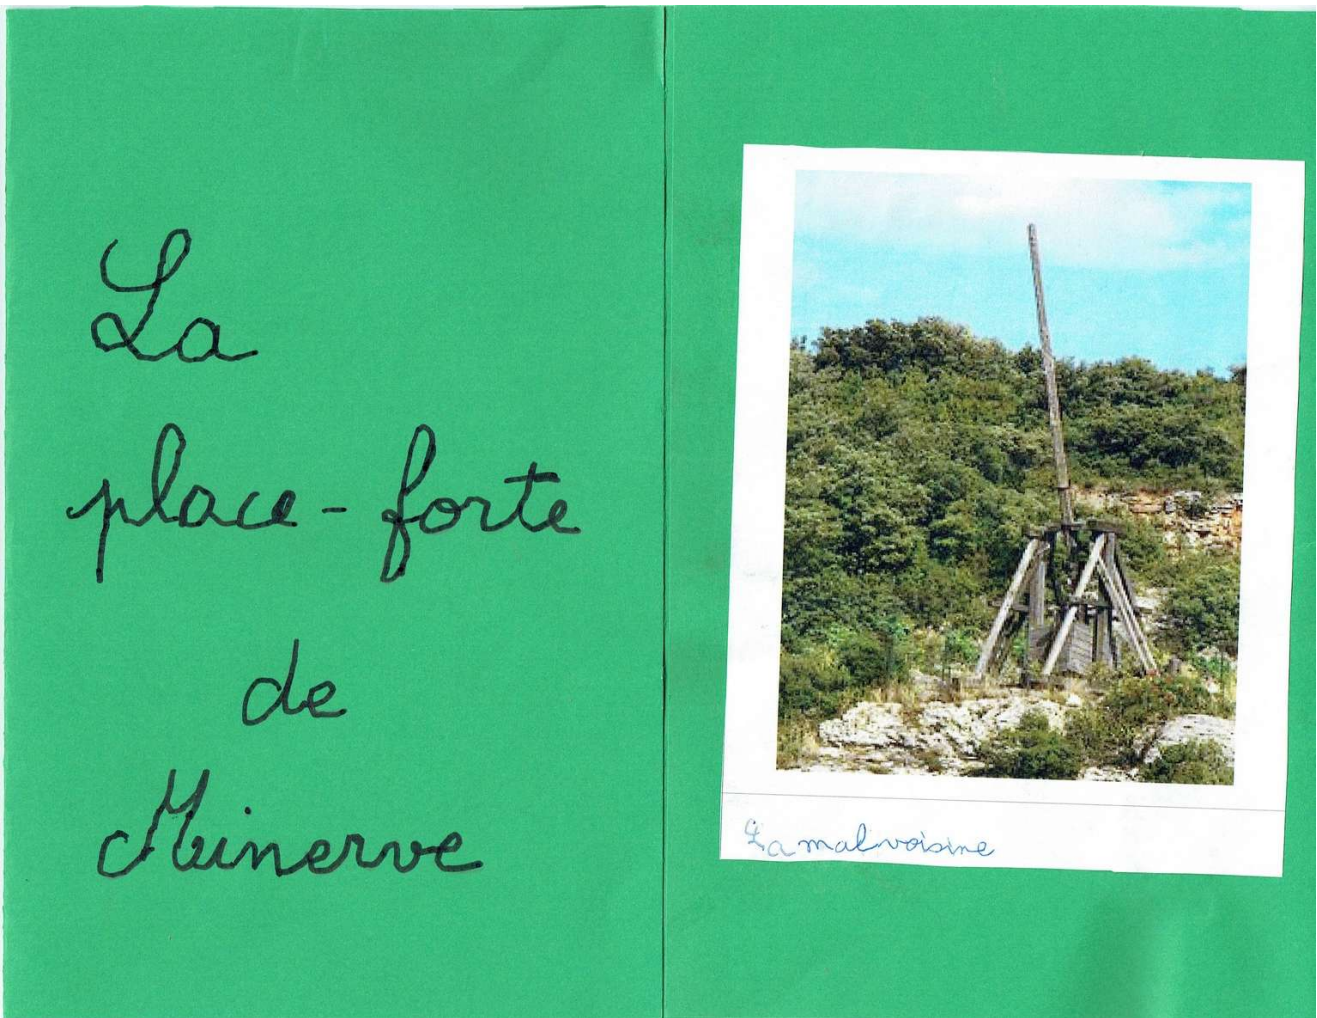 La
place-forte
de
Minerve
La malvoisine